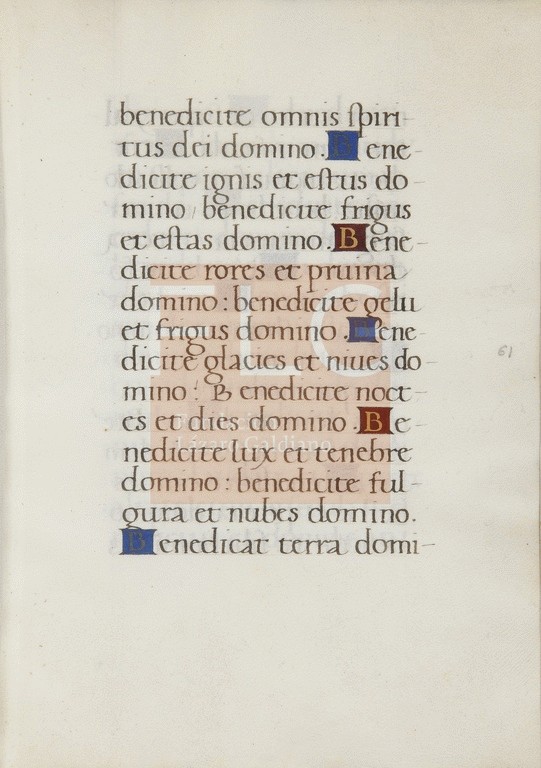 benedicite omnis spiri-
tus dei domino. Bene-
dicite ignis et estus do-
mino / benedicite frigus
et estas domino. Bene-
dicite rores et pruina
domino : benedicite gelu
et frigus domino. Bene-
dicite glacies et niues do-
mino : Benedicite noct-
es et dies domino. Be-
nedicite lux et tenebre
domino : benedicite ful-
gura et nubes domino.
Benedicat terra domi-
61
FLG
Lázaro Galdiano